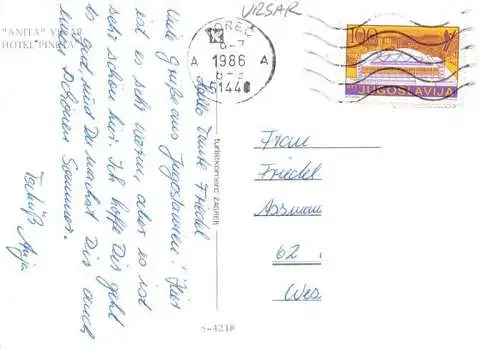 "ANITA" VRSAR
HOTEL PINETA
Hallo Tante Friedel
Viele Grüße aus Jugoslawien! Hier
ist es sehr warm, aber es ist
sehr schön hier. Ich hoffe Dir geht
es gut und Du machst Dir auch
einen schönen Sommer.
Tschüß Anja
turistkomerc ZAGREB
6-4218
VRSAR
POREČ
1986
A A
51440
100
JUGOSLAVIJA
Frau
Friedel
Assmann
62
Wes.